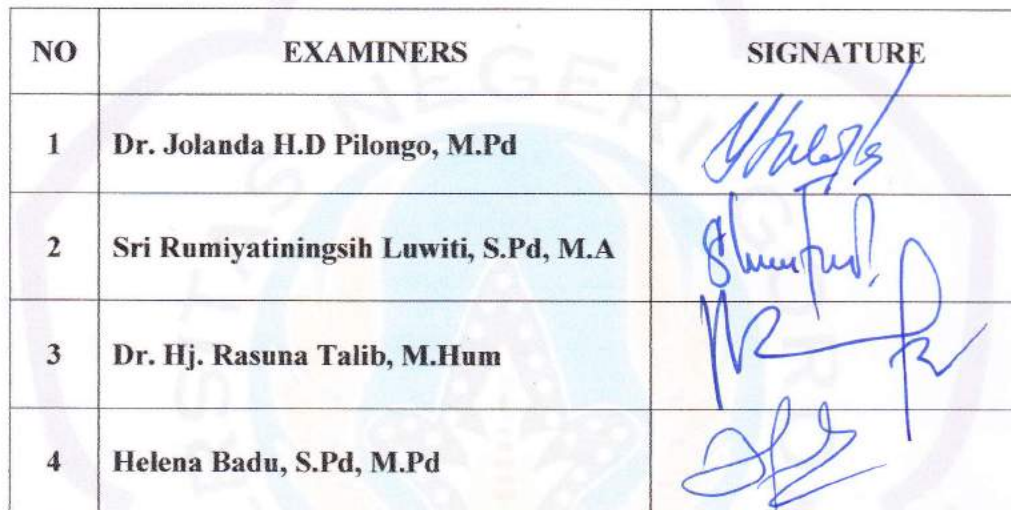 NO EXAMINERS SIGNATURE
1 Dr. Jolanda H.D Pilongo, M.Pd
2 Sri Rumiyatiningsih Luwiti, S.Pd, M.A
3 Dr. Hj. Rasuna Talib, M.Hum
4 Helena Badu, S.Pd, M.Pd